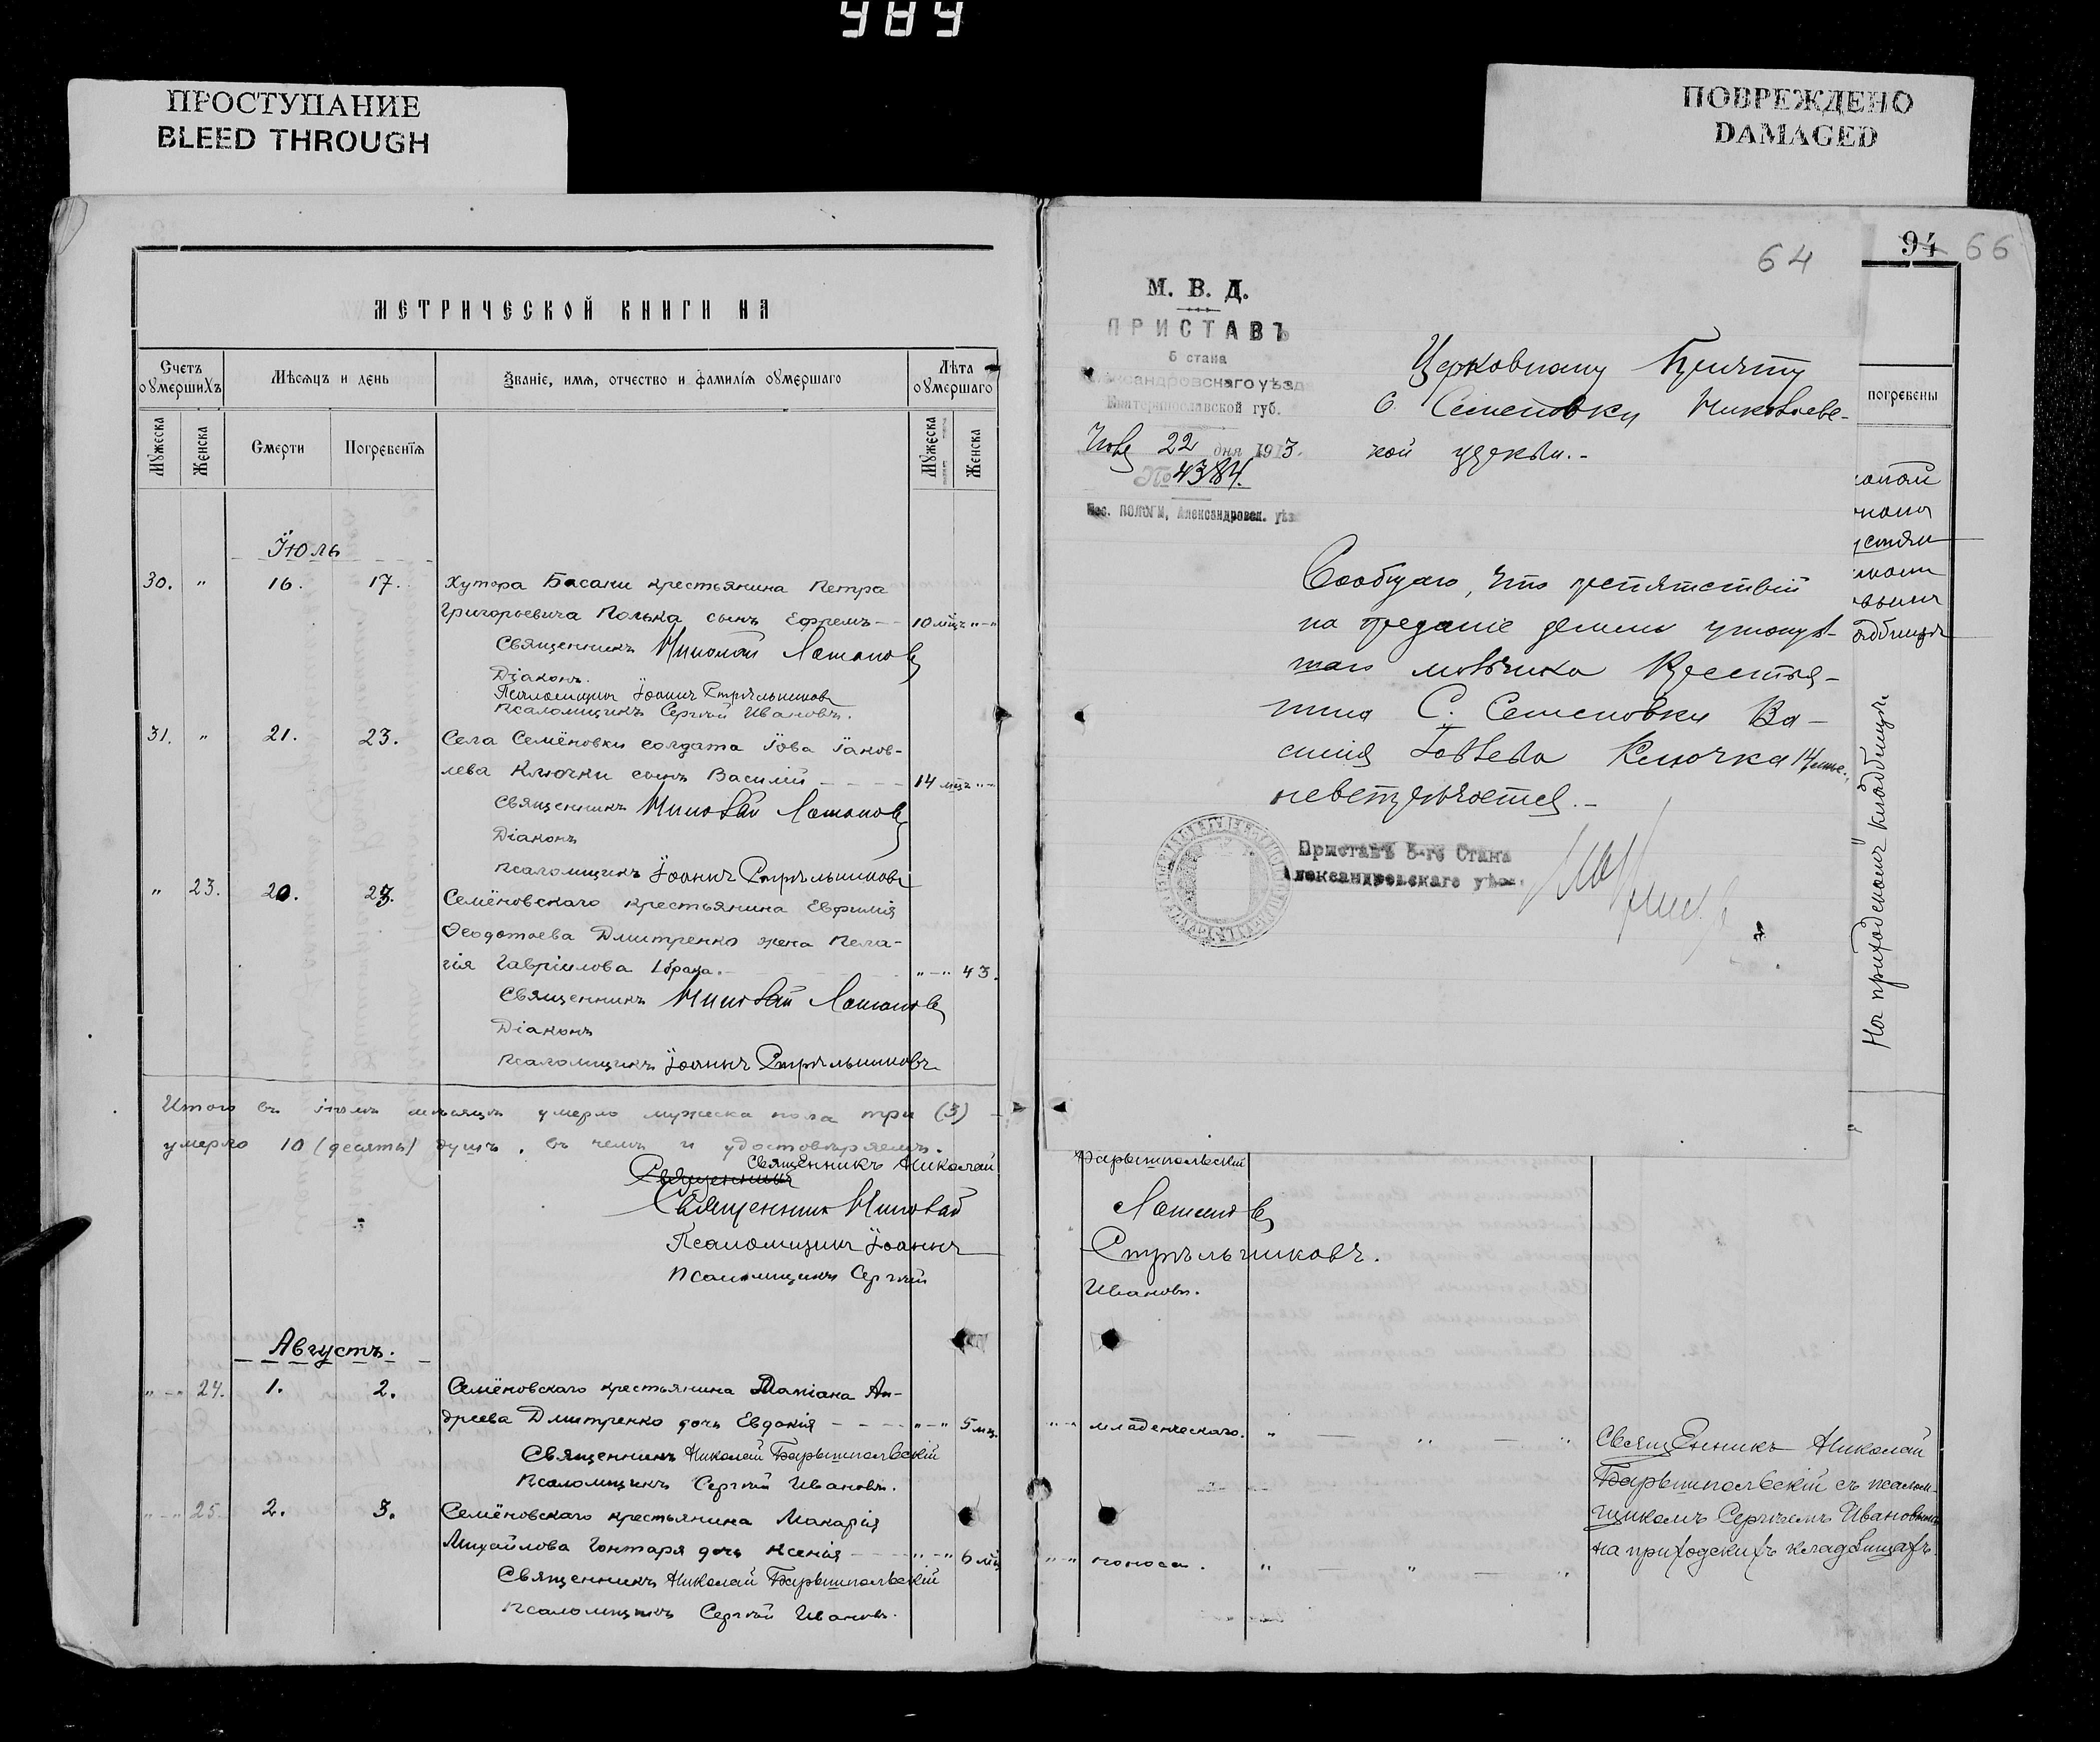 989
ПРОСТУПАНИЕ
BLEED THROUGH
ПОВРЕЖДЕНО
DAMAGED
МЕТРИЧЕСКОЙ КНИГИ НА
Счетъ умершихъ
Мѣсяцъ и день
Званіе, имя, отчество и фамилія умершаго
Лѣта умершаго
Мужеска
Женска
Смерти
Погребенія
Мужеска
Женска
Іюль
30. " 16. 17. Хутора Басани крестьянина Петра
Григорьевича Полька сынъ Ефремъ - - 10 мцъ "-"
Священникъ Николай
Діаконъ
Псаломщикъ Іоаннъ Стрѣльниковъ
Псаломщикъ Сергій Ивановъ.
31. " 21. 23. Села Семёновки солдата Іова Іаков-
лева Клочки сынъ Василій - - - - 14 мцъ "-
Священникъ Николай
Діаконъ
Псаломщикъ Іоаннъ Стрѣльниковъ
" 23. 20. 23. Семёновскаго крестьянина Евфимія
Ѳеодотова Дмитренко жена Пела-
гія Гавріилова 1 брака. "-" 43.
Священникъ Николай
Діаконъ
Псаломщикъ Іоаннъ Стрѣльниковъ
Итого въ іюлѣ мѣсяцѣ умерло мужеска пола три (3)
умерло 10 (десять) душъ, въ чемъ и удостовѣряемъ.
Священникъ Николай
Священникъ
Священникъ Николай
Псаломщикъ Іоаннъ
Псаломщикъ Сергій
Августъ.
"-" 24. 1. 2. Семёновскаго крестьянина Даміана Ан-
дреева Дмитренко дочь Евдокія - - - - "-" 5 мц.
Священникъ Николай Барышпольскій
Псаломщикъ Сергій Ивановъ.
"-" 25. 2. 3. Семёновскаго крестьянина Макарія
Михайлова Гонтаря дочь Ксенія - - "-" 6 мц
Священникъ Николай Барышпольскій
Псаломщикъ Сергій Ивановъ.
64
94 66
М. В. Д.
ПРИСТАВЪ
5 стана
Александровскаго уѣзда
Екатеринославской губ.
22 дня 1913.
№ 4384.
Пос. ПОЛОГИ, Александровск. уѣз
Церковному Причту
С. Семеновки Николаев-
кой церкви.-
Сообщаю, что препятствій
на преданіе землѣ
мальчика Крестья-
нина С. Семеновки Ва-
силія Іовлева Клочка 14 мѣс.,
невстрѣчается.-
Приставъ 5-го Стана
Александровскаго уѣз.
погребены
На приходскомъ кладбищѣ
Барышпольскій
Стрѣльниковъ.
Ивановъ.
"-" младенческаго. " — " — "
"-" поноса. " — " — "
Священникъ Николай
Барышпольскій съ псалом-
щикомъ Сергіемъ Ивановымъ
на приходскихъ кладбищахъ.